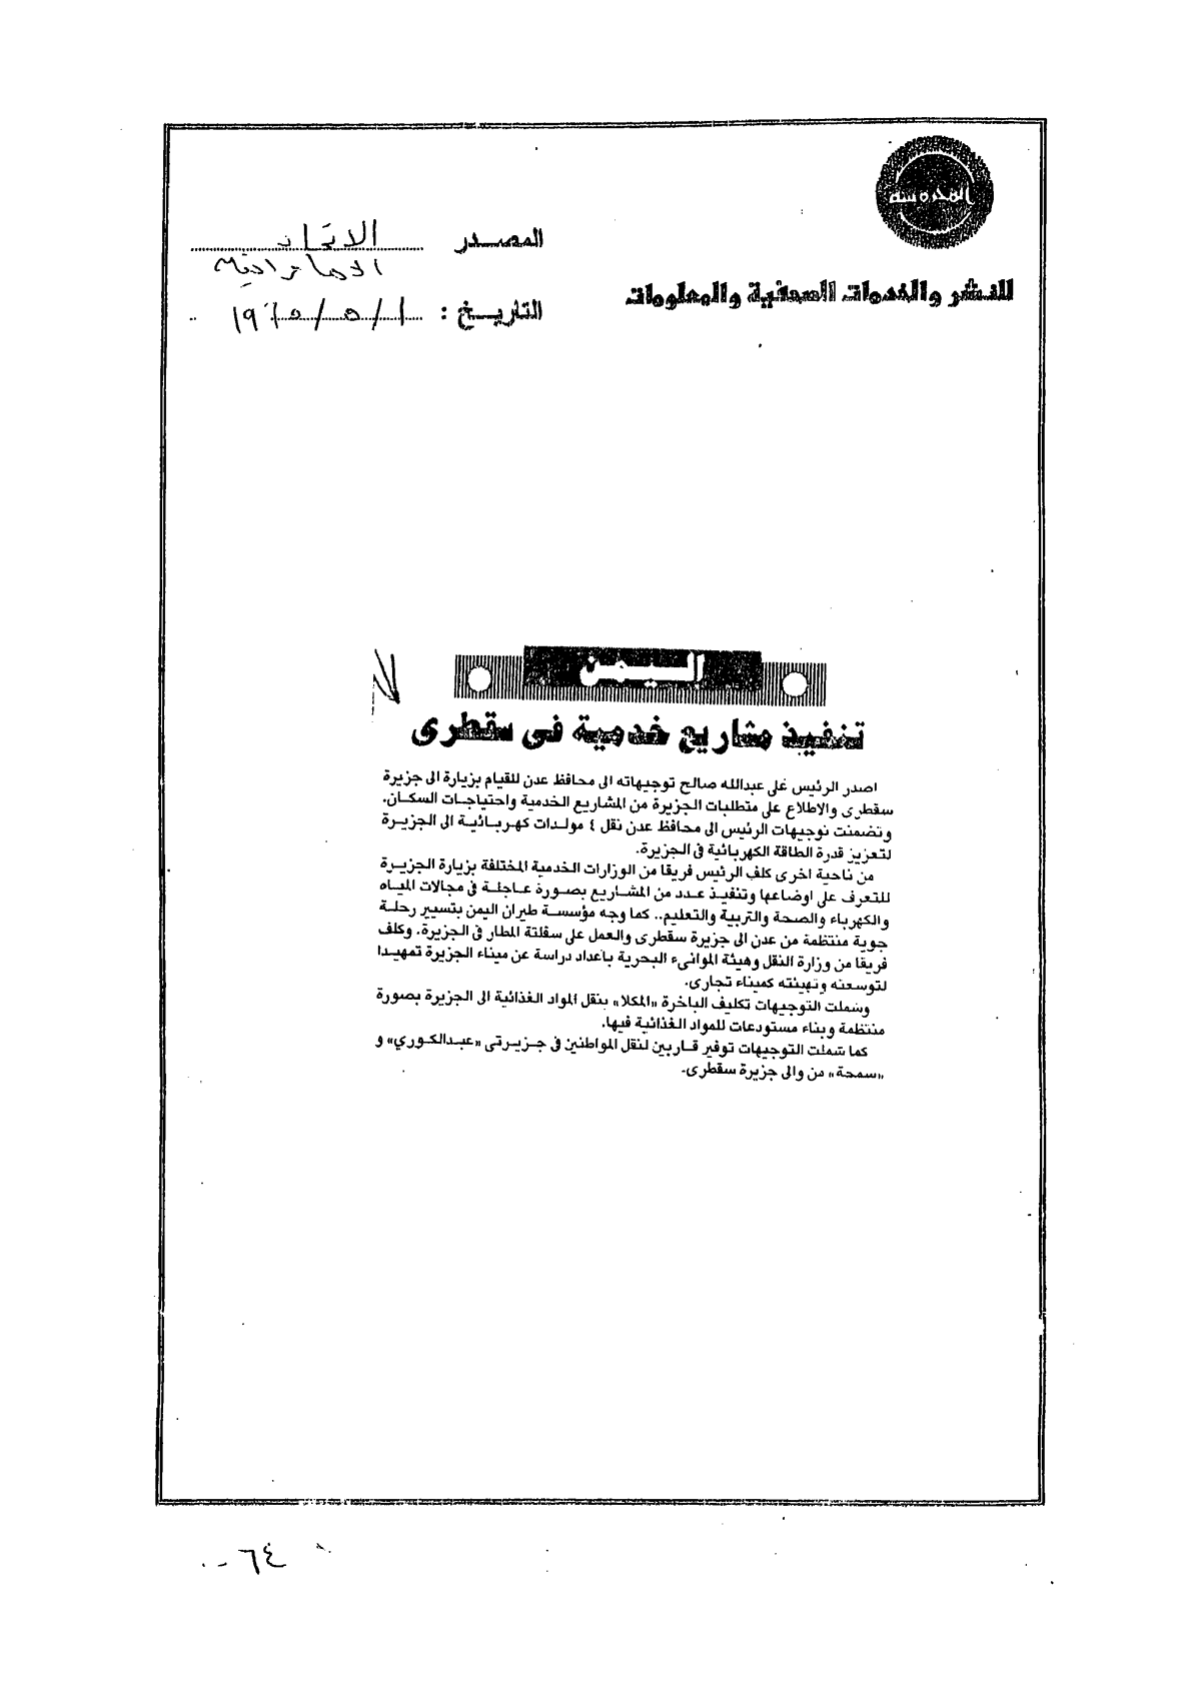 المحروسة
للنشر والخدمات الصحفية والمعلومات
المصدر الاتحاد
الاماراتية
التاريخ : ١ / ٥ /
اليمن
تنفيذ مشاريع خدمية في سقطرى
اصدر الرئيس على عبدالله صالح توجيهاته الى محافظ عدن للقيام بزيارة الى جزيرة
سقطرى والاطلاع على متطلبات الجزيرة من المشاريع الخدمية واحتياجات السكان.
وتضمنت توجيهات الرئيس الى محافظ عدن نقل ٤ مولدات كهربائية الى الجزيرة
لتعزيز قدرة الطاقة الكهربائية في الجزيرة.
من ناحية اخرى كلف الرئيس فريقا من الوزارات الخدمية المختلفة بزيارة الجزيرة
للتعرف على اوضاعها وتنفيذ عدد من المشاريع بصورة عاجلة في مجالات المياه
والكهرباء والصحة والتربية والتعليم.. كما وجه مؤسسة طيران اليمن بتسيير رحلة
جوية منتظمة من عدن الى جزيرة سقطرى والعمل على سفلتة المطار في الجزيرة. وكلف
فريقا من وزارة النقل وهيئة الموانىء البحرية باعداد دراسة عن ميناء الجزيرة تمهيدا
لتوسعته وتهيئته كميناء تجارى.
وشملت التوجيهات تكليف الباخرة «المكلا» بنقل المواد الغذائية الى الجزيرة بصورة
منتظمة وبناء مستودعات للمواد الغذائية فيها.
كما شملت التوجيهات توفير قاربين لنقل المواطنين في جزيرتى «عبدالكوري» و
«سمحة» من والى جزيرة سقطرى.
٦٤